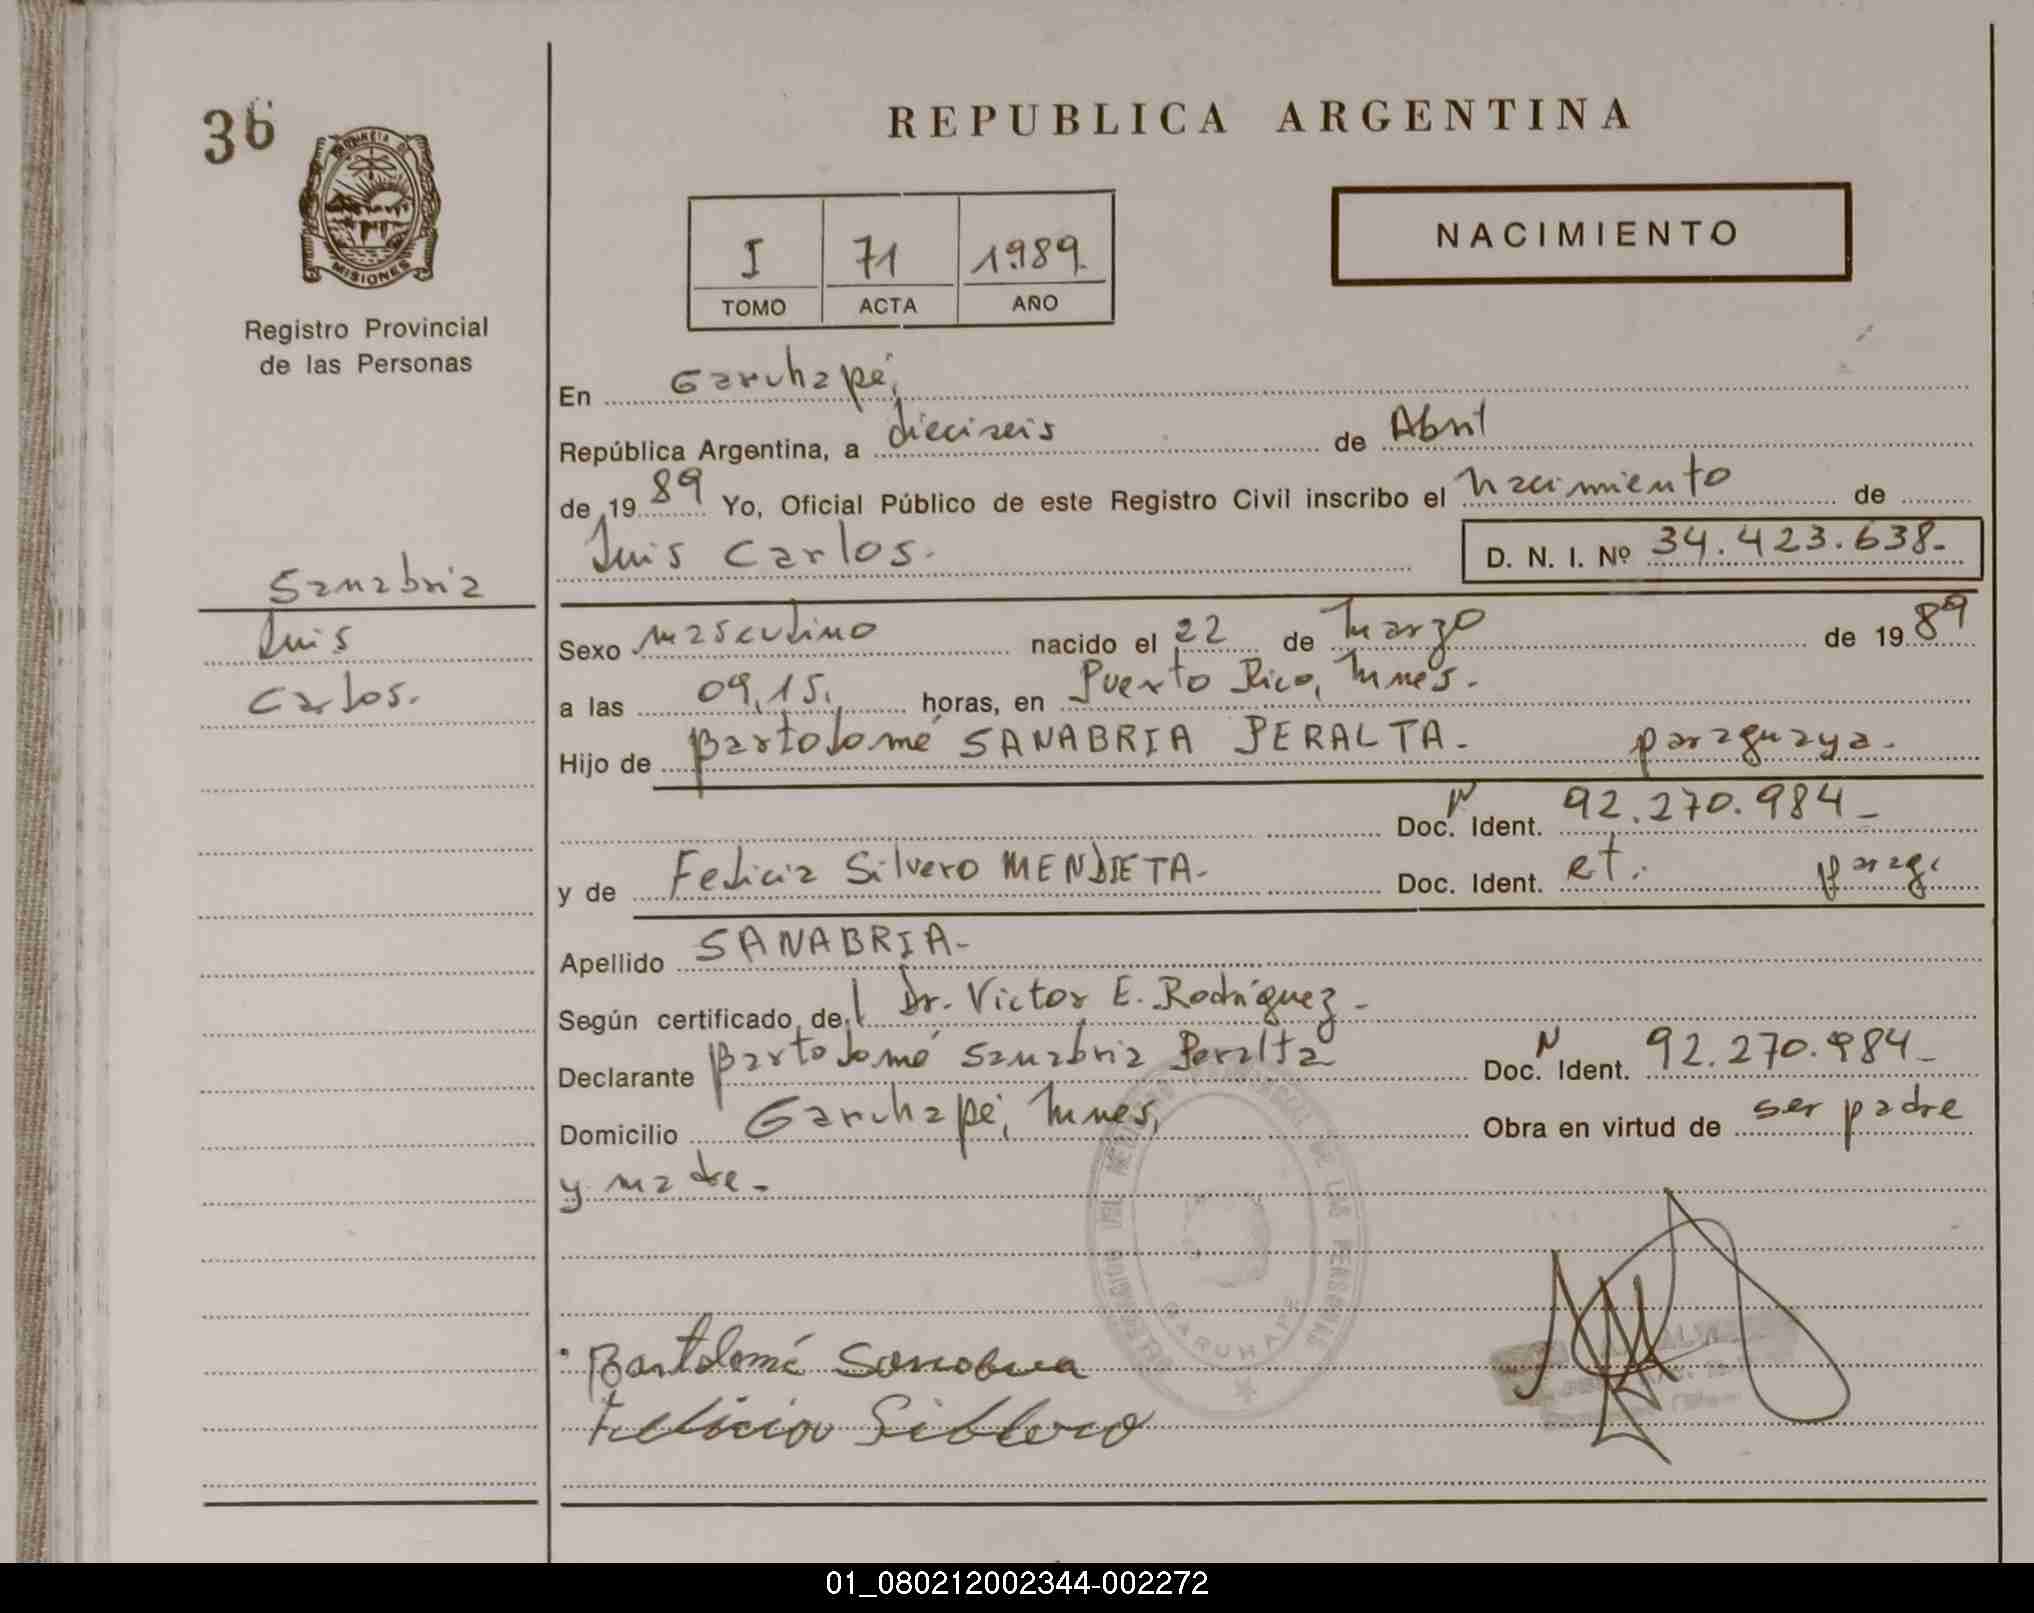 36
PROVINCIA DE
MISIONES
Registro Provincial
de las Personas
REPUBLICA ARGENTINA
I 71 1989.
TOMO ACTA AÑO
NACIMIENTO
En Garuhapé,
República Argentina, a dieciseis de Abril
de 19 89 Yo, Oficial Público de este Registro Civil inscribo el nacimiento de
Luis Carlos.
D. N. I. Nº 34.423.638.-
Sanabria
Luis
Carlos.
Sexo masculino nacido el 22 de Marzo de 19 89
a las 09,15, horas, en Puerto Rico, Mnes.
Hijo de Bartolomé SANABRIA PERALTA.- paraguaya.
Doc. N Ident. 92.270.984_
y de Felicia Silvero MENDIETA.- Doc. Ident. et. parag.
Apellido SANABRIA-
Según certificado de l Dr. Victor E. Rodríguez-
Declarante Bartolomé Sanabria Peralta Doc. N Ident. 92.270.984_
Domicilio Garuhapé, Mnes, Obra en virtud de ser padre
y madre-
DE LAS PERSONAS
GARUHAPE
Bartolomé Sanabria
Felicia Silvero
01_080212002344-002272